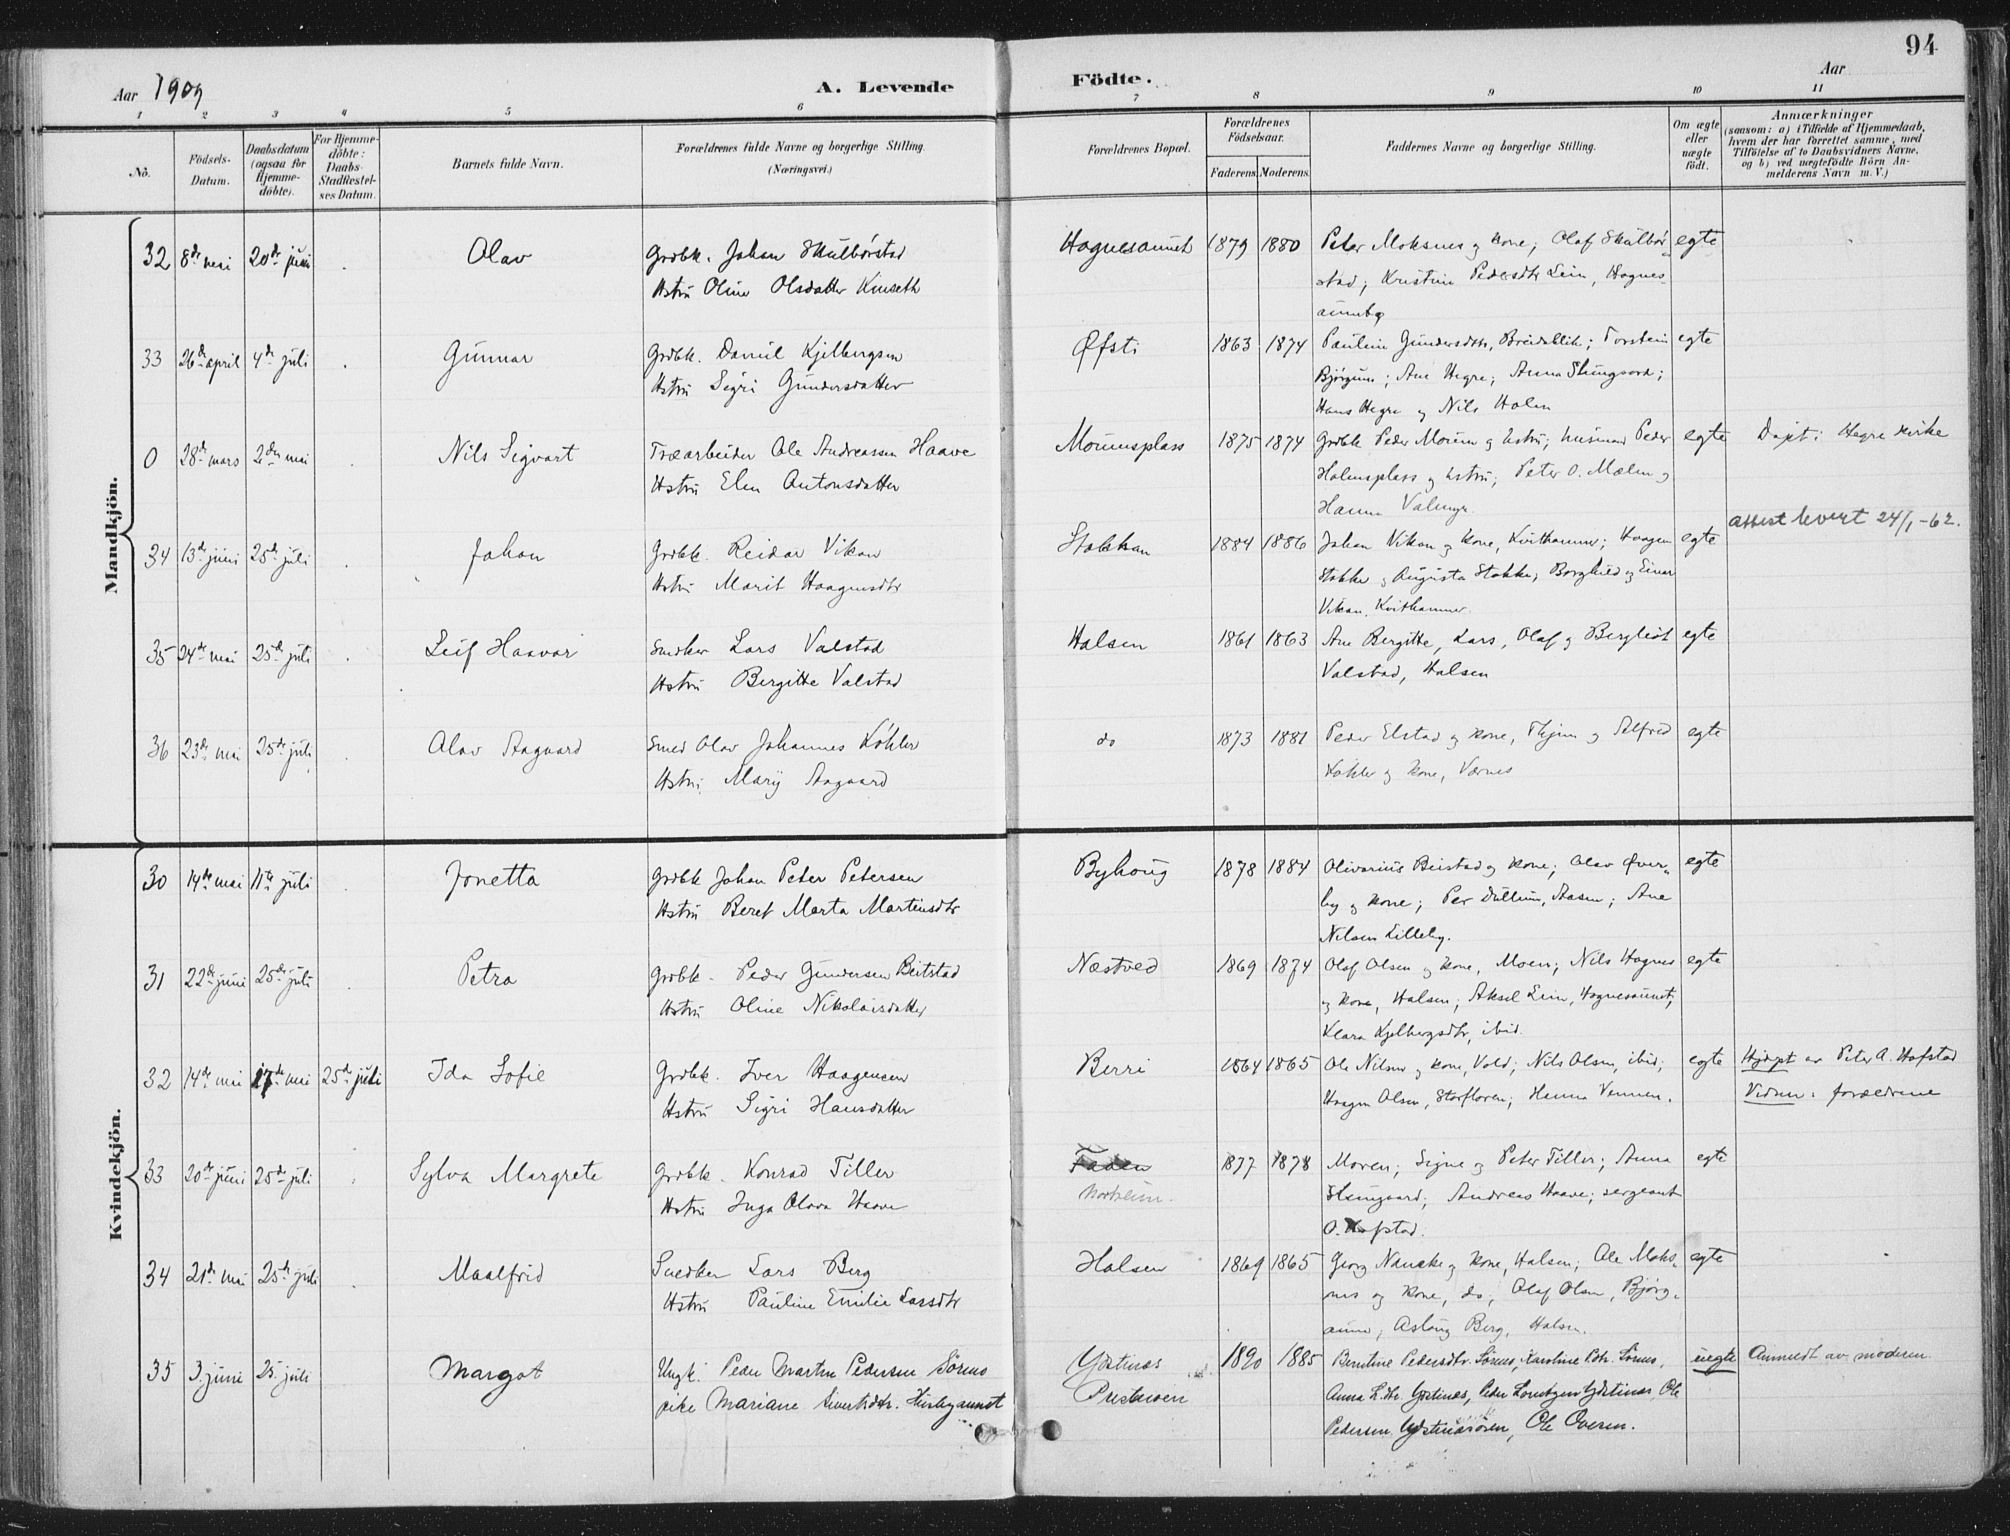 94
Aar 1909
A. Levende Födte.
Aar
1 2 3 4 5 6 7 8 9 10 11
No.
Födsels-Datum.
Daabsdatum (ogsaa for Hjemme-döbte).
For Hjemme-döbte: Daabs-Stadfæstel-ses Datum.
Barnets fulde Navn.
Forældrenes fulde Navne og borgerlige Stilling. (Næringsvei.)
Forældrenes Bopæl.
Forældrenes Födselsaar.
Faderens. Moderens.
Faddernes Navne og borgerlige Stilling.
Om ægte eller uægte födt.
Anmærkninger
(saasom: a) i Tilfælde af Hjemmedaab, hvem der har forrettet samme, med Tilföielse af to Daabsvidners Navne, og b) ved uægtefödte Börn An-melderens Navn m. V.)
Mandkjön.
32 8de mai 20de juni Olav Grdbk. Johan Skulbørstad Hognesaunet 1879 1880 Peter Moksnes og kone; Olaf Skulbør- egte
Hstru Oline Olsdatter Kinseth stad; Kristine Pedersdtr Lein, Hognes-
aunet
33 26de april 4de juli Gunnar Grdbk. Daniel Kjelbergsen Øfsti 1863 1874 Pauline Gundersdtr, Breidablik; Torstein egte
Hstru Sigri Gundersdatter Bjørgum; Ane Hegre; Anna
Hans Hegre og Nils Holen
0 28de mars 2den mai Nils Sigvart Træarbeider Ole Andreassen Haave Mourusplass 1875 1874 Grdbk Peder Mourun og hstru; husmand Peder egte Døpt i Hegre kirke
Hstru Elen Antonsdatter Holmsplass og hstru; Peter O. Mælen og
Hanna
attest levert 24/1-62.
34 13de juni 25de juli Johan Grdbk. Reidar Vikan Stokkan 1884 1886 Johan Vikan og kone, Kvithammer; Haagen egte
Hstru Marit Haagensdtr Stokke og Augusta Stokke; Borghild og Einar
Vikan, Kvithammer.
35 24de mai 25de juli Leif Haavar Snedker Lars Valstad Halsen 1861 1863 Ane Bergitte, Lars, Olaf og Bergliot egte
Hstru Bergitte Valstad Valstad, Halsen
36 23de mai 25de juli Olav Aagaard Smed Olav Johannes Köhler do 1873 1881 Peder Elstad og kone, og Alfred egte
Hstru Marij Aagaard Köhler og kone, Værnes
Kvindekjön.
30 14de mai 11te juli Jonetta Grdbk Johan Peter Petersen Byhoug 1878 1884 Olivarius Beistad og kone; Olav Øver- egte
Hstru Beret Marta Martinsdtr by og kone; Per Dullum, Aasen; Ane
Nilsen Lilleby.
31 22de juni 25de juli Petra Grdbk. Peder Gundersen Beitstad Næstved 1869 1874 Olaf Olsen og kone, Moen; Nils Hognes egte
Hstru Oline Nikolaisdatter og kone, Halsen; Aksel Lein, Hognesaunet;
Klara Kjelbergsdtr, ibid.
32 14de mai 17de mai 25de juli Ida Sofie Grdbk. Iver Haagensen Berri 1864 1865 Ole Nilsen og kone, Vold; Nils Olsen, ibid; egte Hjdøpt av Peter A. Hofstad
Hstru Sigri Hansdatter Haagen Olsen, Storfloren; Hanna Vennen. Vidner: forældrene
33 20de juni 25de juli Sylva Margrete Grdbk. Konrad Tiller 1877 1878 Moren; Signe og Peter Tiller; Anna egte
Hstru Inga Olava Haave Andreas Haave; sergeant
O. Hofstad.
34 21de mai 25de juli Maalfrid Snedker Lars Berg Halsen 1869 1865 Georg Nanseke og kone, Halsen; Ole Moks- egte
Hstru Pauline Emilie Larsdtr nes og kone, do; Olaf Olsen, Bjørg-
aune; Aslaug Berg, Halsen.
35 3. juni 25. juli Margot Ungk. Peder Martin Pedersen Sörmo Ydstines 1890 1885 Berntine Pedersdtr. Sörmo, Karoline Pdr. Sörmo, uegte Anmeldt av moderen
pike Mariane Sivertsdtr. Husbyaunet Prestmoen Anna L.dtr. Ydstines, Peder Lorntzen Ydstines Ole
Pedersen Ydstinesøien, Ole Overen.